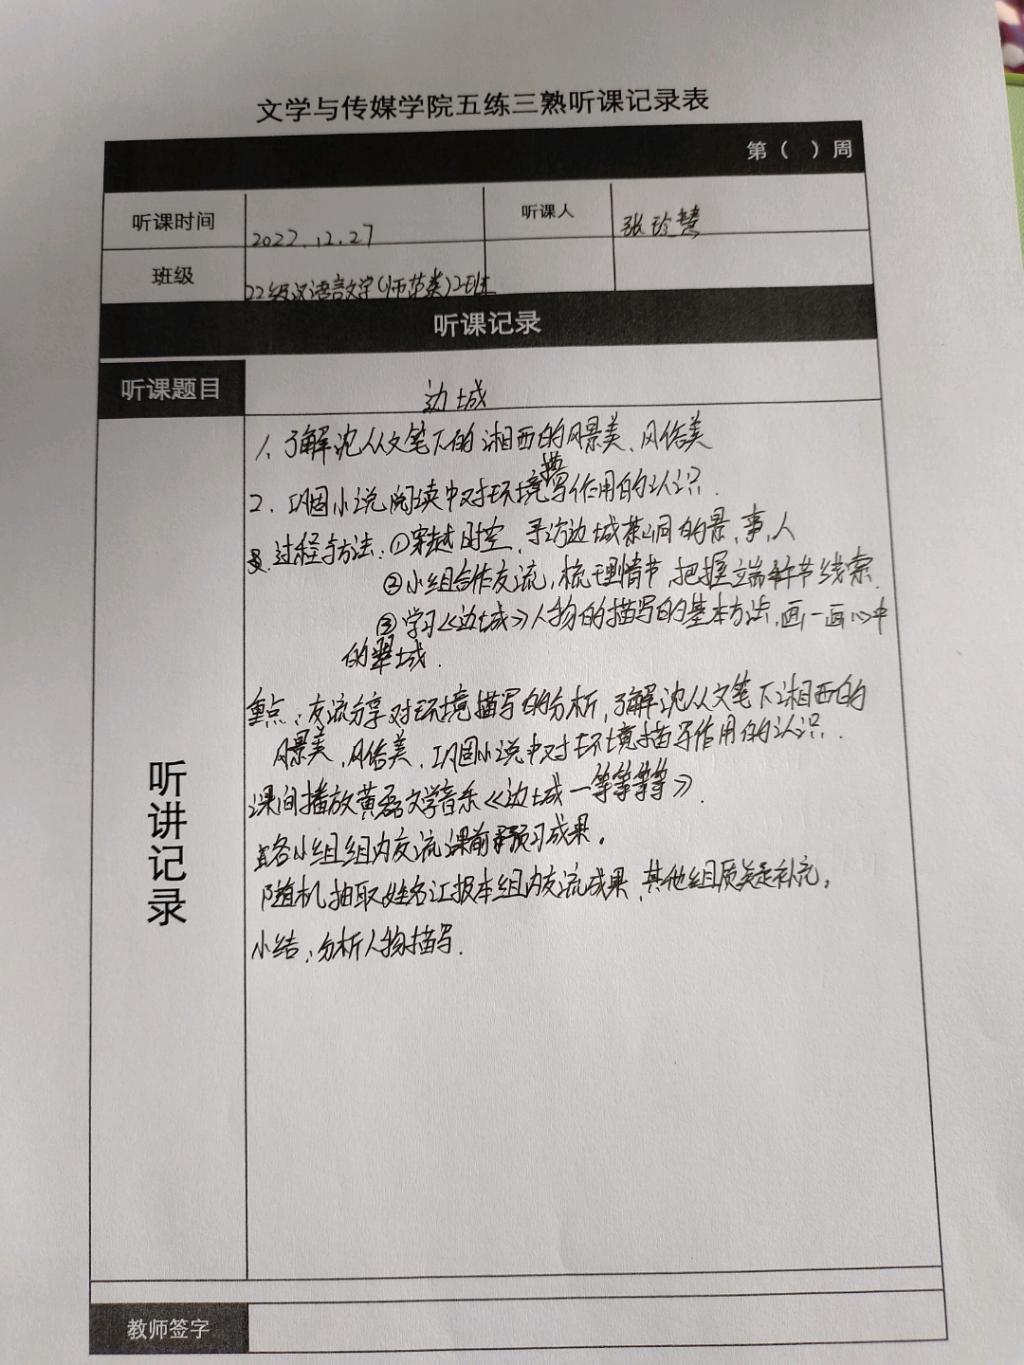 文学与传媒学院五练三熟听课记录表
第（ ）周
听课时间 2022.12.27 听课人 张珍慧
班级 22级汉语言文学(师范类)2班
听课记录
听课题目 边城
听讲记录
1、了解沈从文笔下的湘西的风景美、风俗美
2、巩固小说阅读中对环境描写作用的认识.
过程与方法：①穿越时空、寻访边城茶峒的景、事、人
②小组合作交流，梳理情节，把握端午节线索.
③学习《边城》人物的描写的基本方法，画一画心中
的翠城.
重点：交流分享对环境描写的分析，了解沈从文笔下湘西的
风景美、风俗美、巩固小说中对环境描写作用的认识.
课间播放黄磊文学音乐《边城—等等等等》.
各小组组内交流课前预习成果。
随机抽取姓名汇报本组内交流成果，其他组质疑补充。
小结：分析人物描写.
教师签字